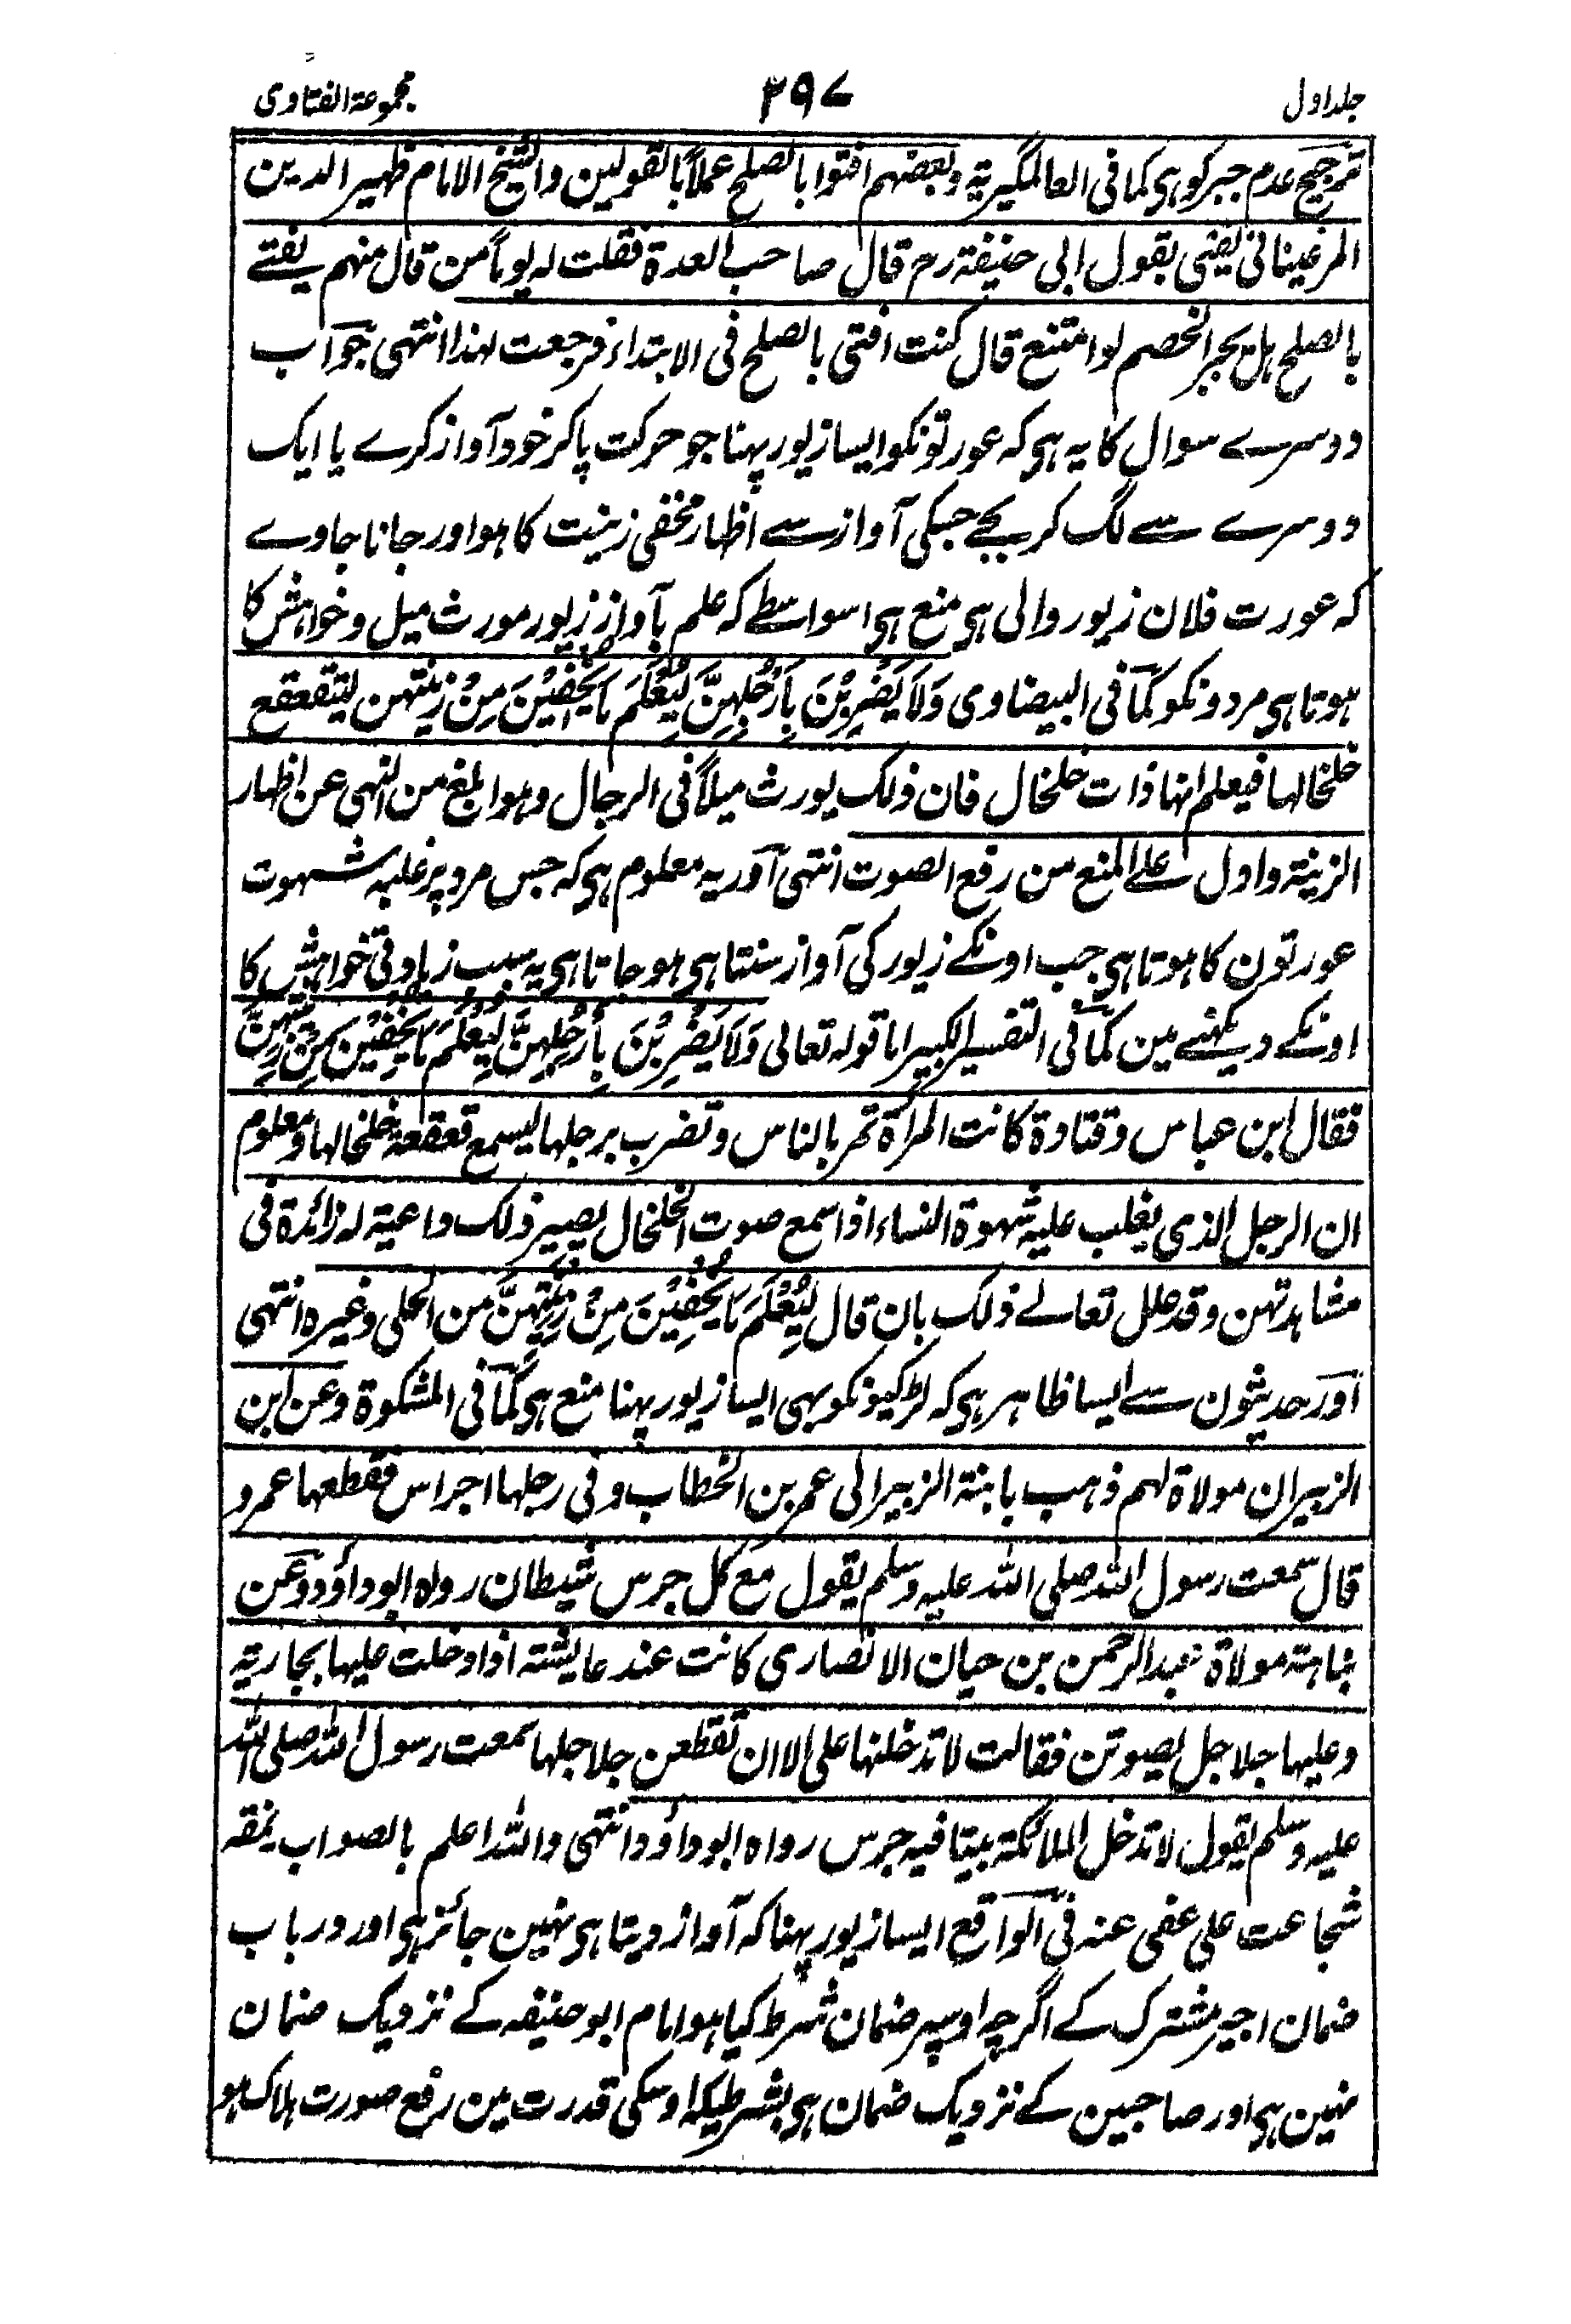 جلد اول ۳۹۷ مجموعۃ الفتاوی
ترجیح عدم جبر کو ہی کما فی العالمگیریۃ وبعضہم افتوا بالصلح عملاً بالقولین والشیخ الامام ظہیر الدین
المرغینانی یفتی بقول ابی حنیفۃ رح قال صاحب العدۃ فقلت لہ یوماً من قال منہم یفتے
بالصلح ہل یجبر الخصم لو امتنع قال کنت افتی بالصلح فی الابتداء فرجعت لہذا انتہی جواب
دوسرے سوال کا یہ ہی کہ عورتونکو ایسا زیور پہننا جو حرکت پاکر خود آواز کرے یا ایک
دوسرے سے لگ کر بجے جسکی آواز سے اظہار مخفی زینت کا ہو اور جانا جاوے
کہ عورت فلان زیور والی ہی منع ہی اسواسطے کہ علم بآواز زیور مورث میل و خواہش کا
ہوتا ہی مردونکو کما فی البیضاوی وَلَا یَضْرِبْنَ بِاَرْجُلِہِنَّ لِیُعْلَمَ مَا یُخْفِیْنَ مِنْ زِیْنَتِہِن لیتقعقع
خلخالہا فیعلم انہا ذات خلخال فان ذلک یورث میلاً فی الرجال وہو ابلغ من النہی عن اظہار
الزینۃ وادل علے المنع من رفع الصوت انتہی اور یہ معلوم ہی کہ جس مرد پر غلبہ شہوت
عورتون کا ہوتا ہی جب اونکے زیور کی آواز سنتا ہی ہو جاتا ہی یہ سبب زیادتی خواہش کا
اونکے دیکہنے مین کما فی التفسیر الکبیر اما قولہ تعالی وَلَا یَضْرِبْنَ بِأَرْجُلِہِنَّ لِیُعْلَمَ مَا یُخْفِیْنَ مِنْ زِیْنَتِہِنَّ
فقال ابن عباس وقتادۃ کانت المرأۃ تمر بالناس وتضرب برجلہا لیسمع قعقعۃ خلخالہا ومعلوم
ان الرجل الذی یغلب علیہ شہوۃ النساء اذا سمع صوت الخلخال یصیر ذلک داعیۃ لہ زائدۃ فی
مشاہدتہن وقد علل تعالے ذلک بان قال لِیُعْلَمَ مَا یُخْفِیْنَ مِنْ زِیْنَتِہِنَّ من الحلی وغیرہ انتہی
اور حدیثون سے ایسا ظاہر ہی کہ لڑکیونکو بہی ایسا زیور پہننا منع ہی کما فی المشکوۃ وعن ابن
الزبیر ان مولاۃ لہم ذہب بابنۃ الزبیر الی عمر بن الخطاب وفی رجلہا اجراس فقطعہا عمر و
قال سمعت رسول اللہ صلی اللہ علیہ وسلم یقول مع کل جرس شیطان رواہ ابوداؤد وعن
بنانۃ مولاۃ عبدالرحمن بن حیان الانصاری کانت عند عایشۃ اذا دخلت علیہا بجاریۃ
وعلیہا جلاجل یصوتن فقالت لا تدخلنہا علی الا ان تقطعن جلاجلہا سمعت رسول اللہ صلی اللہ
علیہ وسلم یقول لا تدخل الملائکۃ بیتا فیہ جرس رواہ ابوداؤد انتہی واللہ اعلم بالصواب نمقہ
شجاعت علی عفی عنہ فی الواقع ایسا زیور پہننا کہ آواز دیتا ہی نہین جائز ہی اور درباب
ضمان اجیر مشترک کے اگرچہ اوسپر ضمان شرط کیا ہو امام ابوحنیفہ کے نزدیک ضمان
نہین ہی اور صاحبین کے نزدیک ضمان ہی بشرطیکہ اوسکی قدرت مین رفع صورت ہلاک ہو